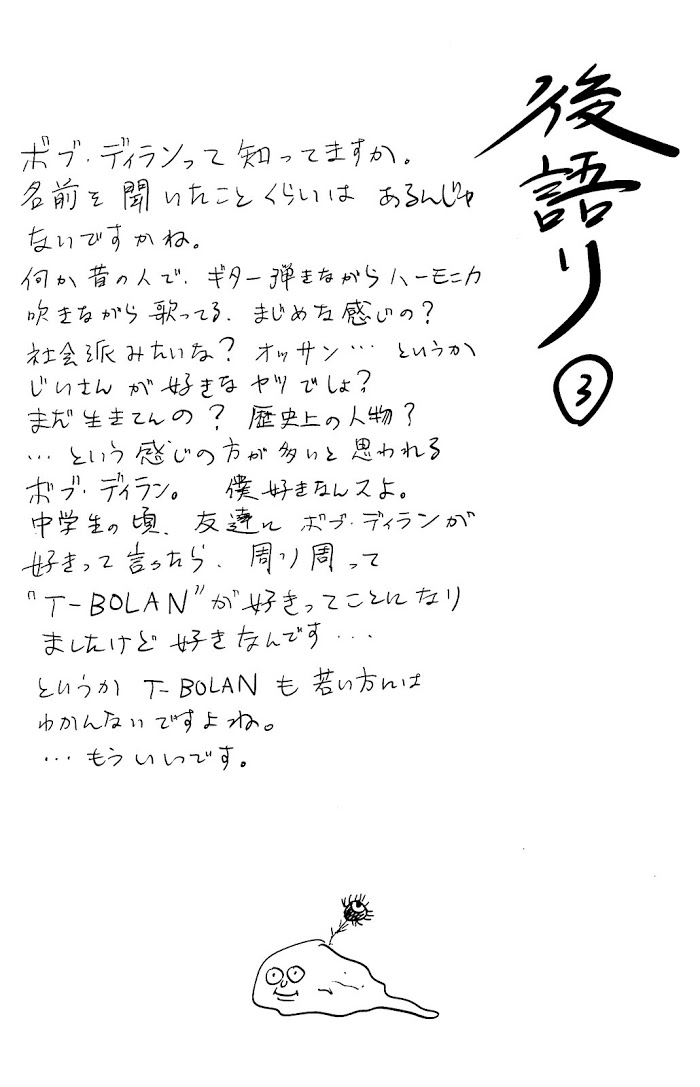 後語り③
ボブ・ディランって知ってますか。
名前を聞いたことくらいは あるんじゃ
ないですかね。
何か昔の人で、ギター弾きながらハーモニカ
吹きながら歌ってる、まじめな感じの?
社会派みたいな? オッサン… というか
じいさんが好きなヤツでしょ?
まだ生きてんの? 歴史上の人物?
…という感じの方が多いと思われる
ボブ・ディラン。 僕好きなんスよ。
中学生の頃、友達に ボブ・ディランが
好きって言ったら、周り周って
"T-BOLAN"が好きってことになり
ましたけど好きなんです…
というか T-BOLANも若い方には
わかんないですよね。
…もういいです。